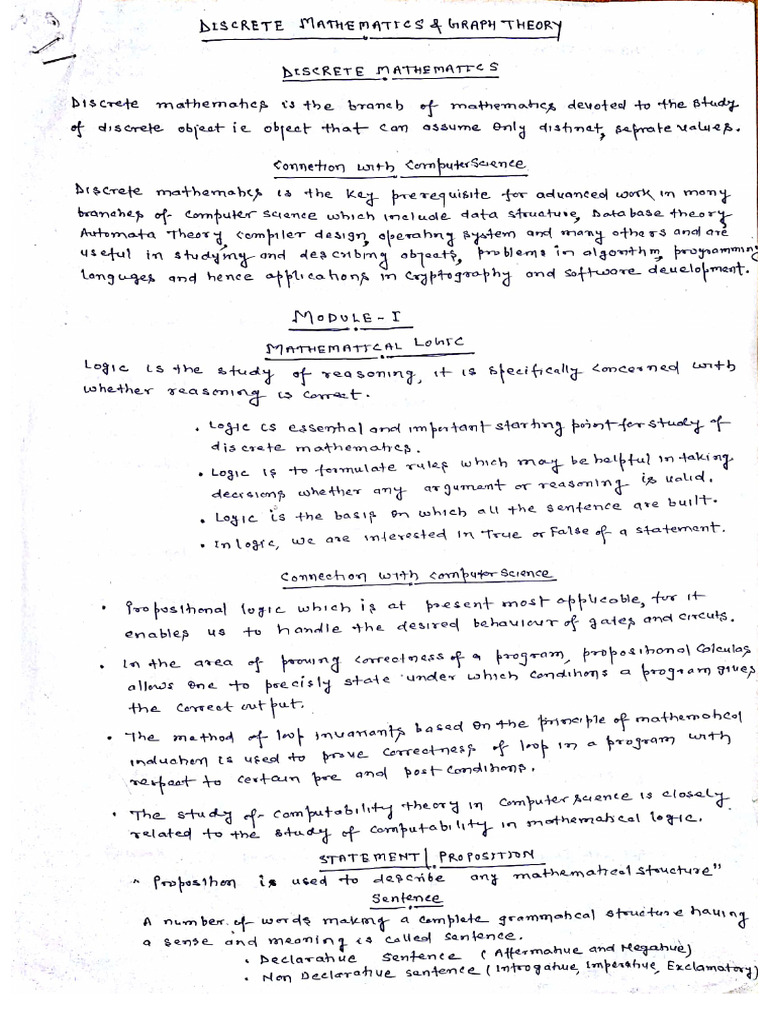 DISCRETE MATHEMATICS & GRAPH THEORY
DISCRETE MATHEMATICS
Discrete mathematics is the branch of mathematics devoted to the study
of discrete object ie object that can assume only distinct, seprate values.
Connetion with Computer Science
Discrete mathematics is the key prerequisite for advanced work in many
branches of computer science which include data structure, Database theory
Automata Theory, compiler design, operating system and many others and are
useful in studying and describing objects, problems in algorithm, programming
languges and hence applications in cryptography and software development.
MODULE-I
MATHEMATICAL LOGIC
Logic is the study of reasoning, it is specifically concerned with
whether reasoning is correct.
• Logic is essential and important starting point for study of
discrete mathematics.
• Logic is to formulate rules which may be helpful in taking
decisions whether any argument or reasoning is valid.
• Logic is the basis on which all the sentence are built.
• In logic, we are interested in True or False of a statement.
Connection with Computer Science
• Propositional logic which is at present most applicable, for it
enables us to handle the desired behaviour of gates and circuts.
• In the area of proving correctness of a program, propositional calculas
allows one to precisly state under which conditions a program gives
the correct output.
• The method of loop invariants based on the principle of mathematical
induction is used to prove correctness of loop in a program with
respact to certain pre and post conditions.
• The study of computability theory in computer science is closely
related to the study of computability in mathematical logic.
STATEMENT | PROPOSITION
" Proposition is used to describe any mathematical structure"
Sentence
A number of words making a complete grammatical structure having
a sense and meaning is called sentence.
• Declarative sentence (Affermative and Negative)
• Non Declarative sentence (Introgative, Imperative, Exclamatory)